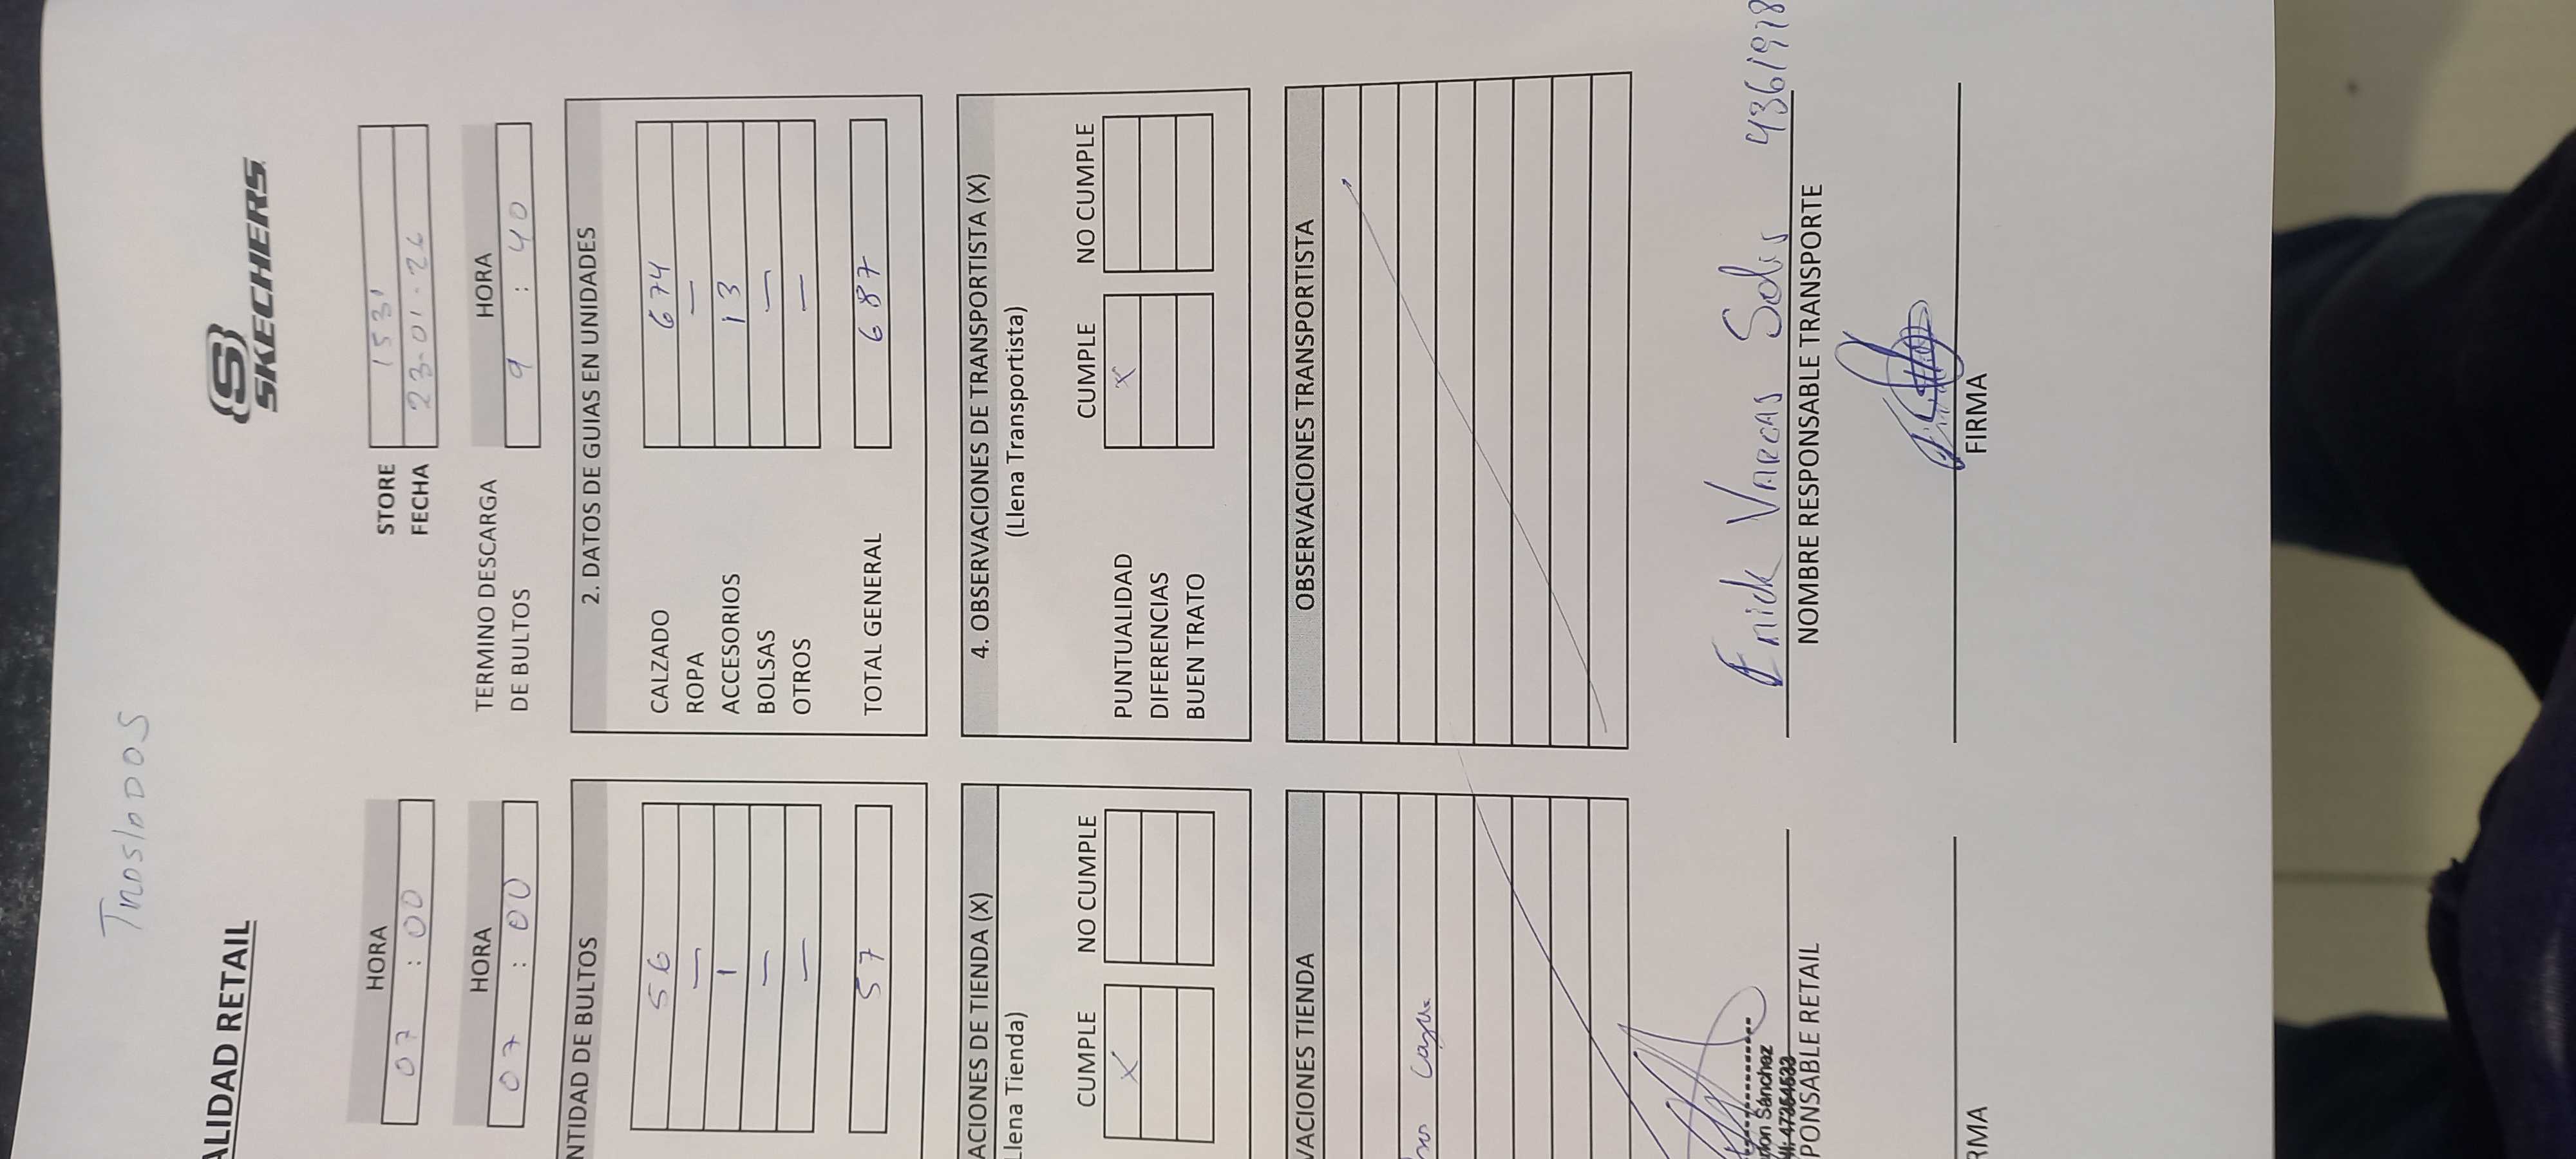 TrasladOS
SKECHERS
ALIDAD RETAIL
HORA
07 : 00
STORE 1531
FECHA 23-01-26
HORA
07 : 00
TERMINO DESCARGA DE BULTOS
HORA
9 : 40
NTIDAD DE BULTOS
56
—
1
—
—
57
2. DATOS DE GUIAS EN UNIDADES
CALZADO 674
ROPA —
ACCESORIOS 13
BOLSAS —
OTROS —
TOTAL GENERAL 687
ACIONES DE TIENDA (X)
Llena Tienda)
CUMPLE NO CUMPLE
X
4. OBSERVACIONES DE TRANSPORTISTA (X)
(Llena Transportista)
CUMPLE NO CUMPLE
PUNTUALIDAD X
DIFERENCIAS
BUEN TRATO
VACIONES TIENDA
OBSERVACIONES TRANSPORTISTA
Sánchez
47354533
PONSABLE RETAIL
RMA
Erick VARGAS Solis 43619718
NOMBRE RESPONSABLE TRANSPORTE
FIRMA